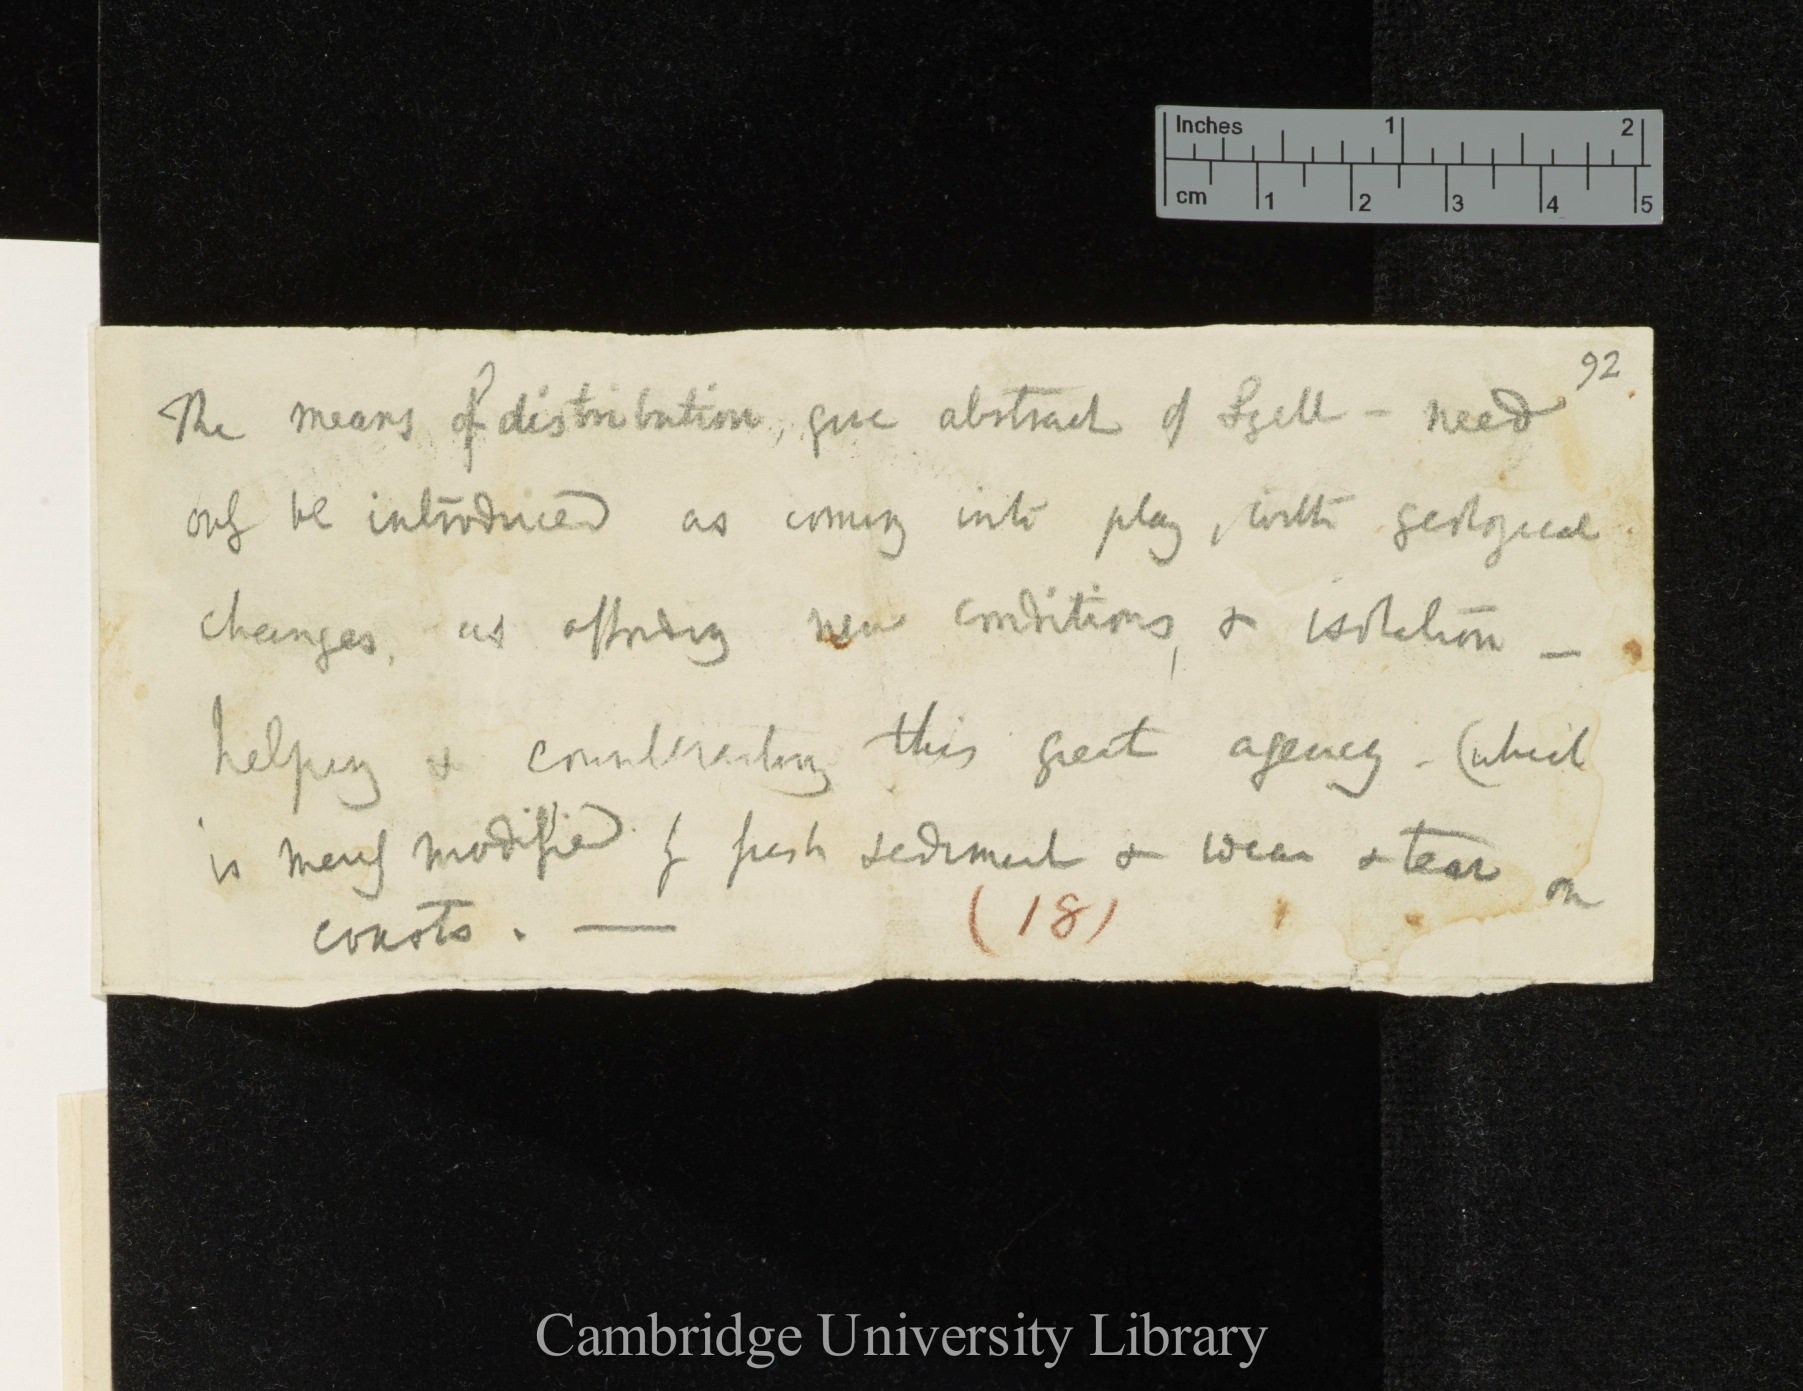 Inches 1 2
cm 1 2 3 4 5
92
The means of distribution, give abstract of Lyell – need
only be introduced as coming into play, with geological
changes, as affording new conditions, & isolation —
helping & counteracting this great agency – (which
is merely modified by fresh sediment & wear & tear on
coasts. —
(18)
Cambridge University Library